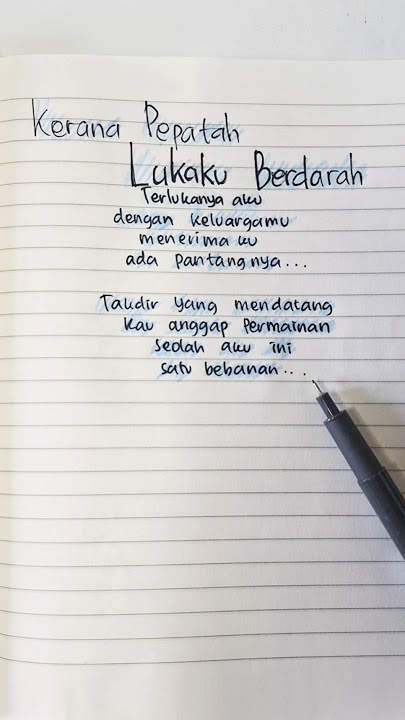 Kerana Pepatah
Lukaku Berdarah
Terlukanya aku
dengan keluargamu
menerima ku
ada pantangnya...
Takdir yang mendatang
Kau anggap permainan
seolah aku ini
satu bebanan...